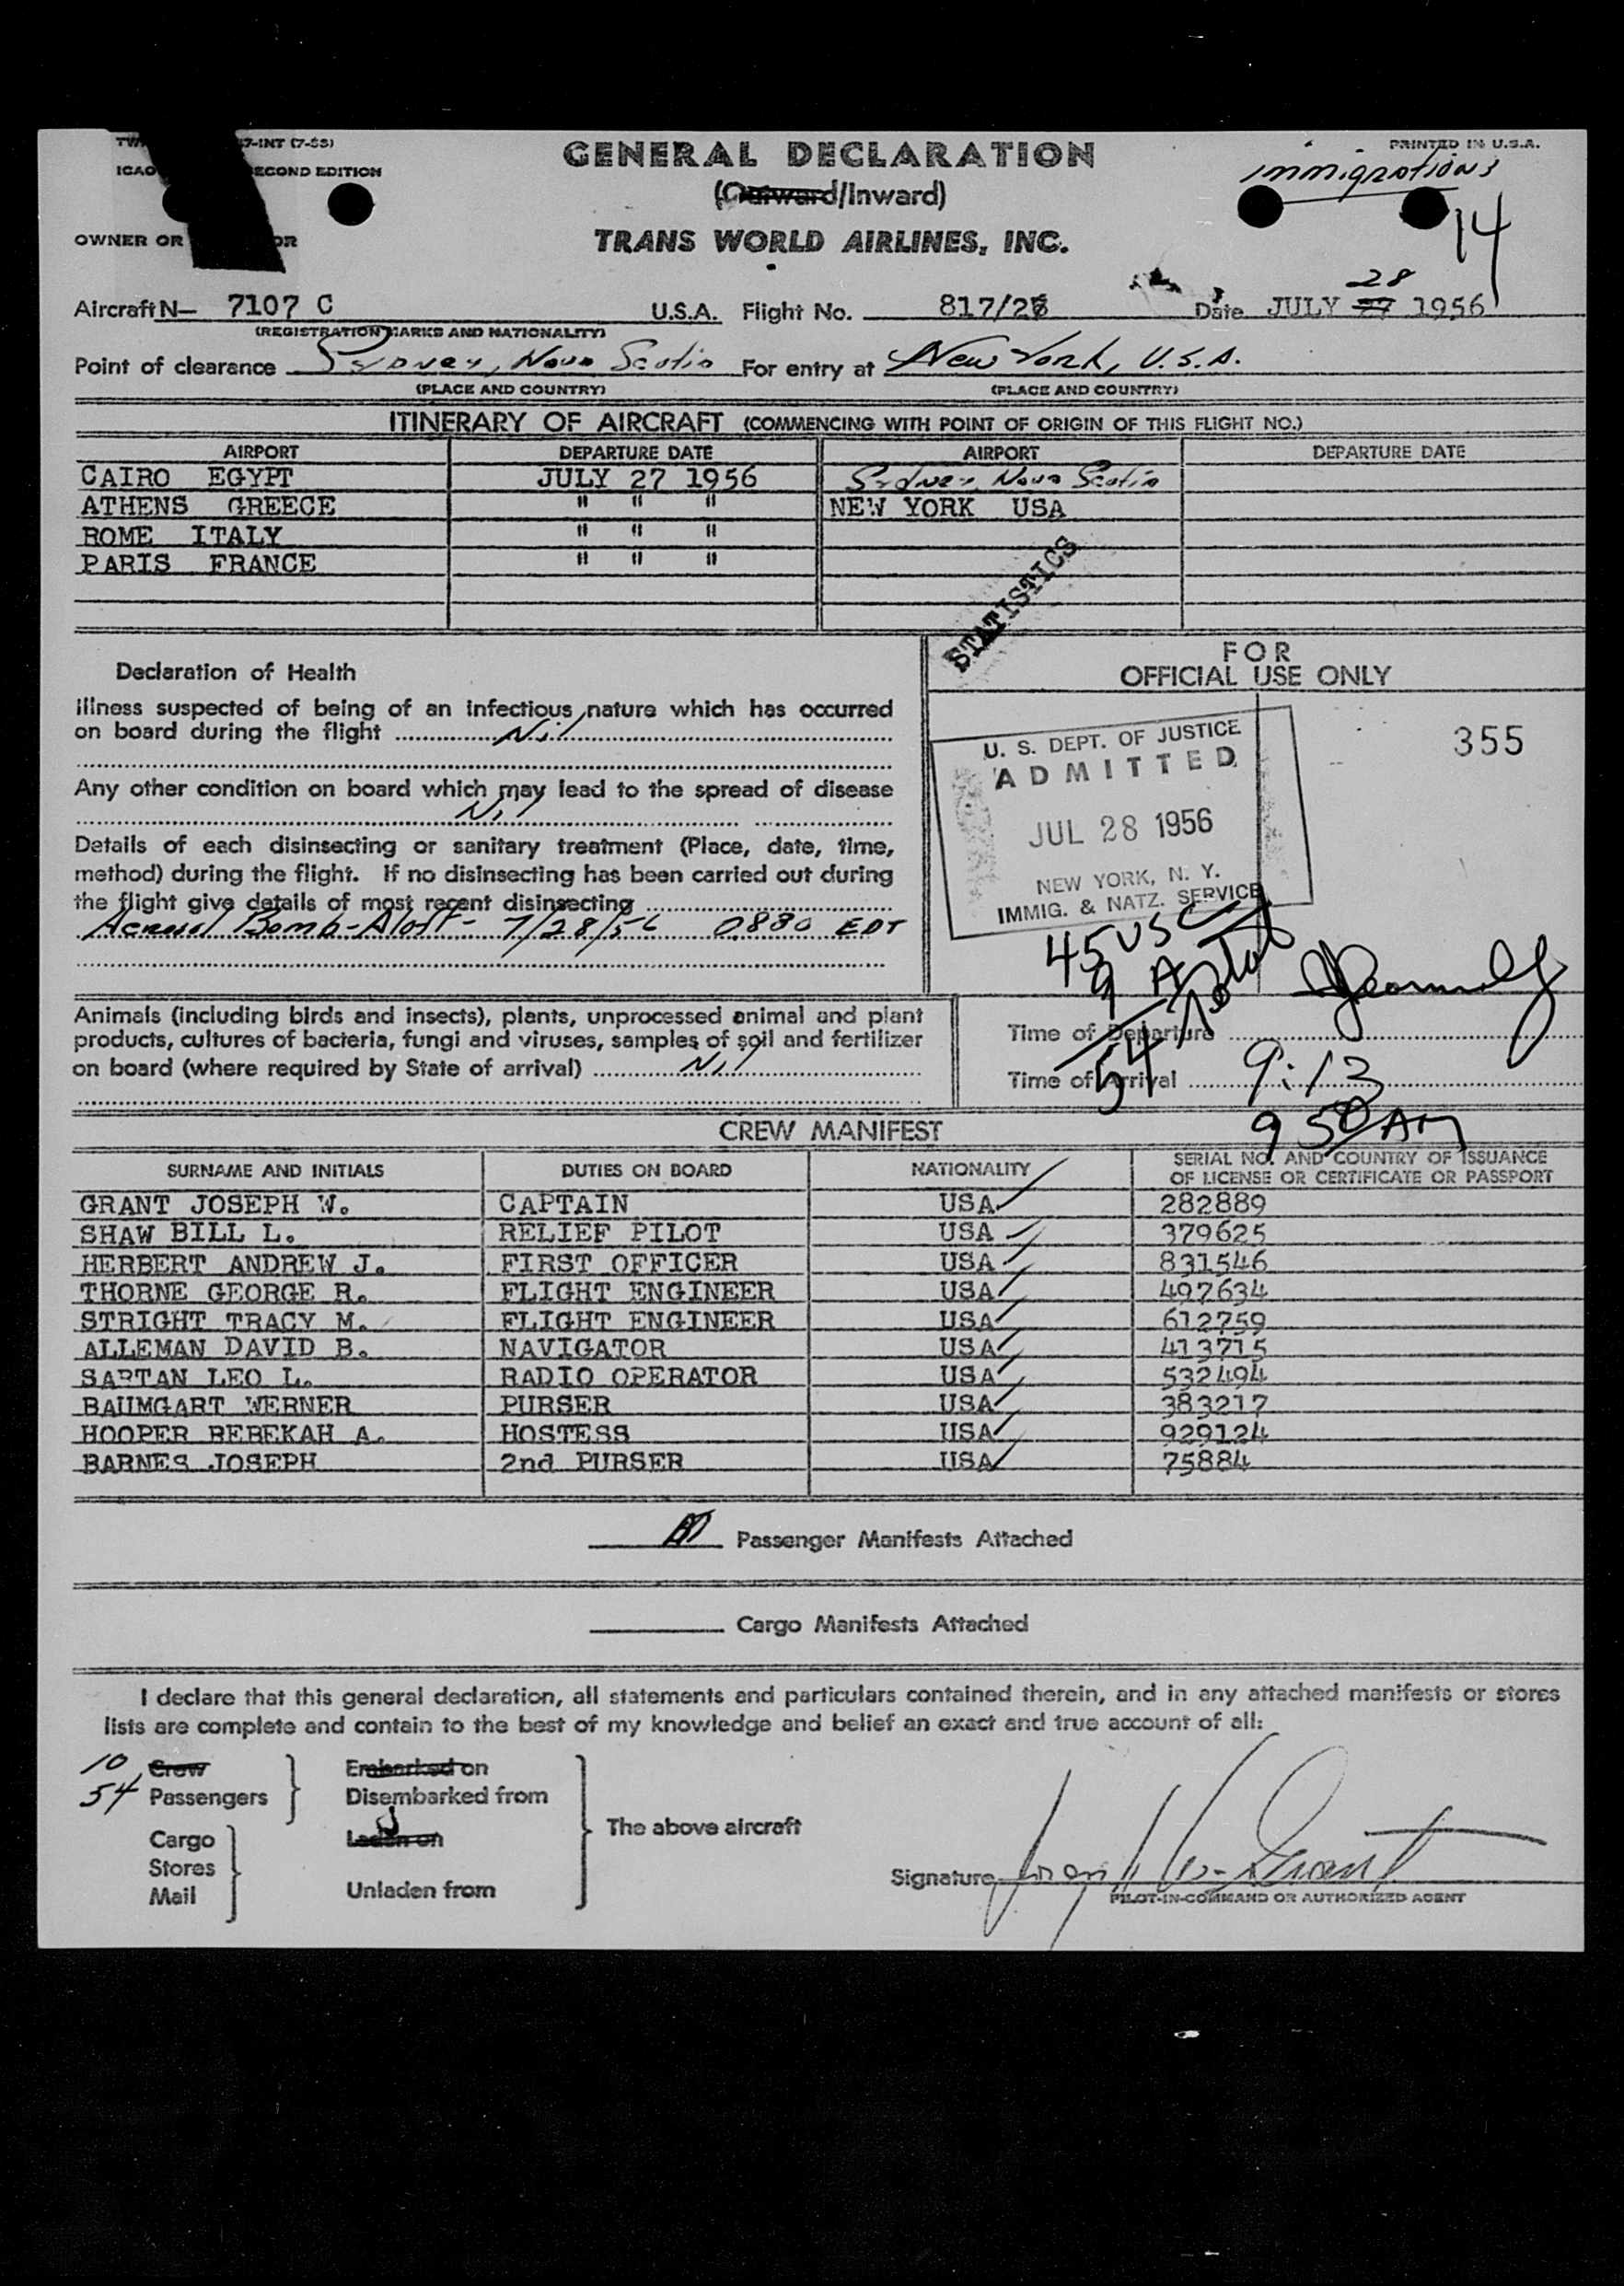 7-INT (7-55)
PRINTED IN U.S.A.
GENERAL DECLARATION
immigrations
ICAO SECOND EDITION
(Outward/Inward)
14
OWNER OR
TRANS WORLD AIRLINES, INC.
28
Aircraft N— 7107 C U.S.A. Flight No. 817/28 Date JULY 27 1956
(REGISTRATION MARKS AND NATIONALITY)
Point of clearance Sydney, Nova Scotia For entry at New York, U.S.A.
(PLACE AND COUNTRY) (PLACE AND COUNTRY)
ITINERARY OF AIRCRAFT (COMMENCING WITH POINT OF ORIGIN OF THIS FLIGHT NO.)
AIRPORT DEPARTURE DATE AIRPORT DEPARTURE DATE
CAIRO EGYPT JULY 27 1956 Sydney, Nova Scotia
ATHENS GREECE " " " NEW YORK USA
ROME ITALY " " "
PARIS FRANCE " " "
STATISTICS
FOR
OFFICIAL USE ONLY
Declaration of Health
Illness suspected of being of an infectious nature which has occurred
on board during the flight Nil
Any other condition on board which may lead to the spread of disease
Nil
Details of each disinsecting or sanitary treatment (Place, date, time,
method) during the flight. If no disinsecting has been carried out during
the flight give details of most recent disinsecting
Aerosol Bomb-Aloft- 7/28/56 0830 EDT
355
U. S. DEPT. OF JUSTICE
ADMITTED
JUL 28 1956
NEW YORK, N. Y.
IMMIG. & NATZ. SERVICE
45 USC
9 A
54 Total
Animals (including birds and insects), plants, unprocessed animal and plant
products, cultures of bacteria, fungi and viruses, samples of soil and fertilizer
on board (where required by State of arrival) Nil
Time of Departure
Time of Arrival 9:13
9 50 AM
CREW MANIFEST
SURNAME AND INITIALS DUTIES ON BOARD NATIONALITY SERIAL NO. AND COUNTRY OF ISSUANCE
OF LICENSE OR CERTIFICATE OR PASSPORT
GRANT JOSEPH W. CAPTAIN USA 282889
SHAW BILL L. RELIEF PILOT USA 379625
HERBERT ANDREW J. FIRST OFFICER USA 831546
THORNE GEORGE R. FLIGHT ENGINEER USA 497634
STRIGHT TRACY M. FLIGHT ENGINEER USA 612759
ALLEMAN DAVID B. NAVIGATOR USA 413715
SARTAN LEO L. RADIO OPERATOR USA 532494
BAUMGART WERNER PURSER USA 383217
HOOPER REBEKAH A. HOSTESS USA 929124
BARNES JOSEPH 2nd PURSER USA 75884
Passenger Manifests Attached
Cargo Manifests Attached
I declare that this general declaration, all statements and particulars contained therein, and in any attached manifests or stores
lists are complete and contain to the best of my knowledge and belief an exact and true account of all:
10 Crew Embarked on
54 Passengers Disembarked from
The above aircraft
Cargo Laden on
Stores
Mail Unladen from
Signature Joseph W. Grant
PILOT-IN-COMMAND OR AUTHORIZED AGENT